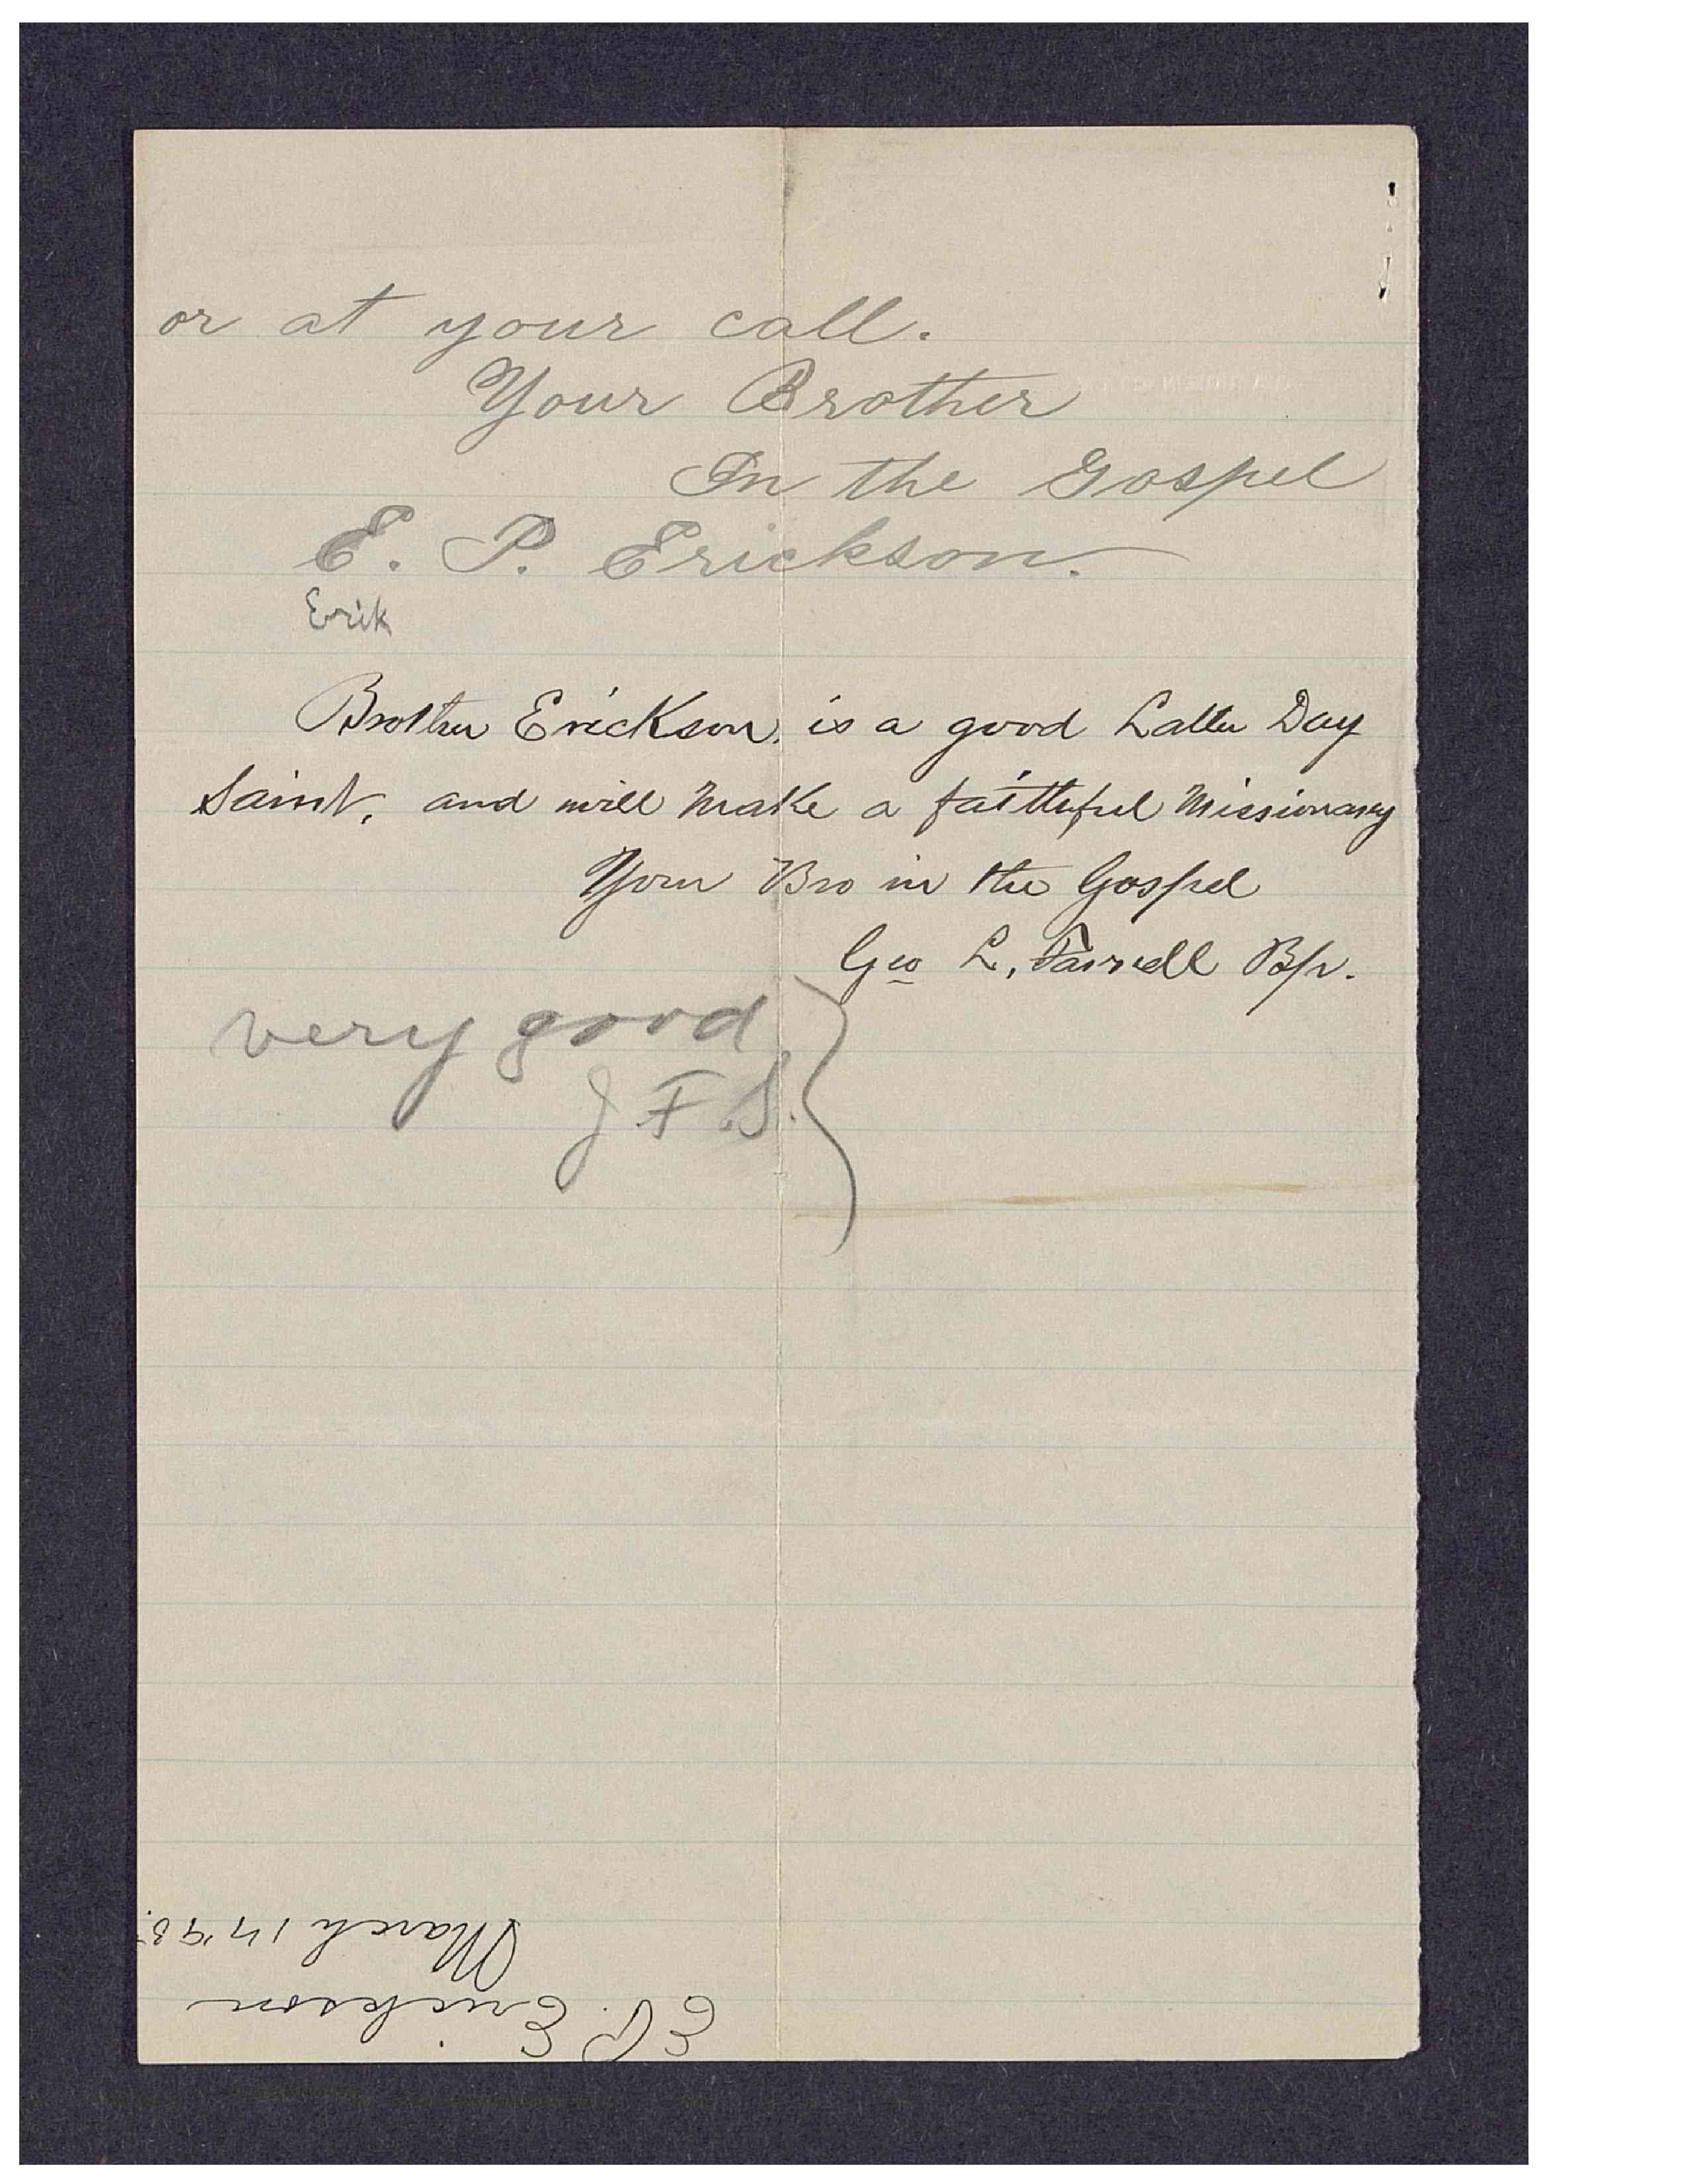 or at your call.
Your Brother
In the Gospel
E. P. Erickson.
Erik
Brother Erickson, is a good Latter Day
Saint, and will make a faithful Missionary
Your Bro in the Gospel
Geo L, Farrell Bp.
very good
J F.S.
E P. Erickson
March 14 '98.